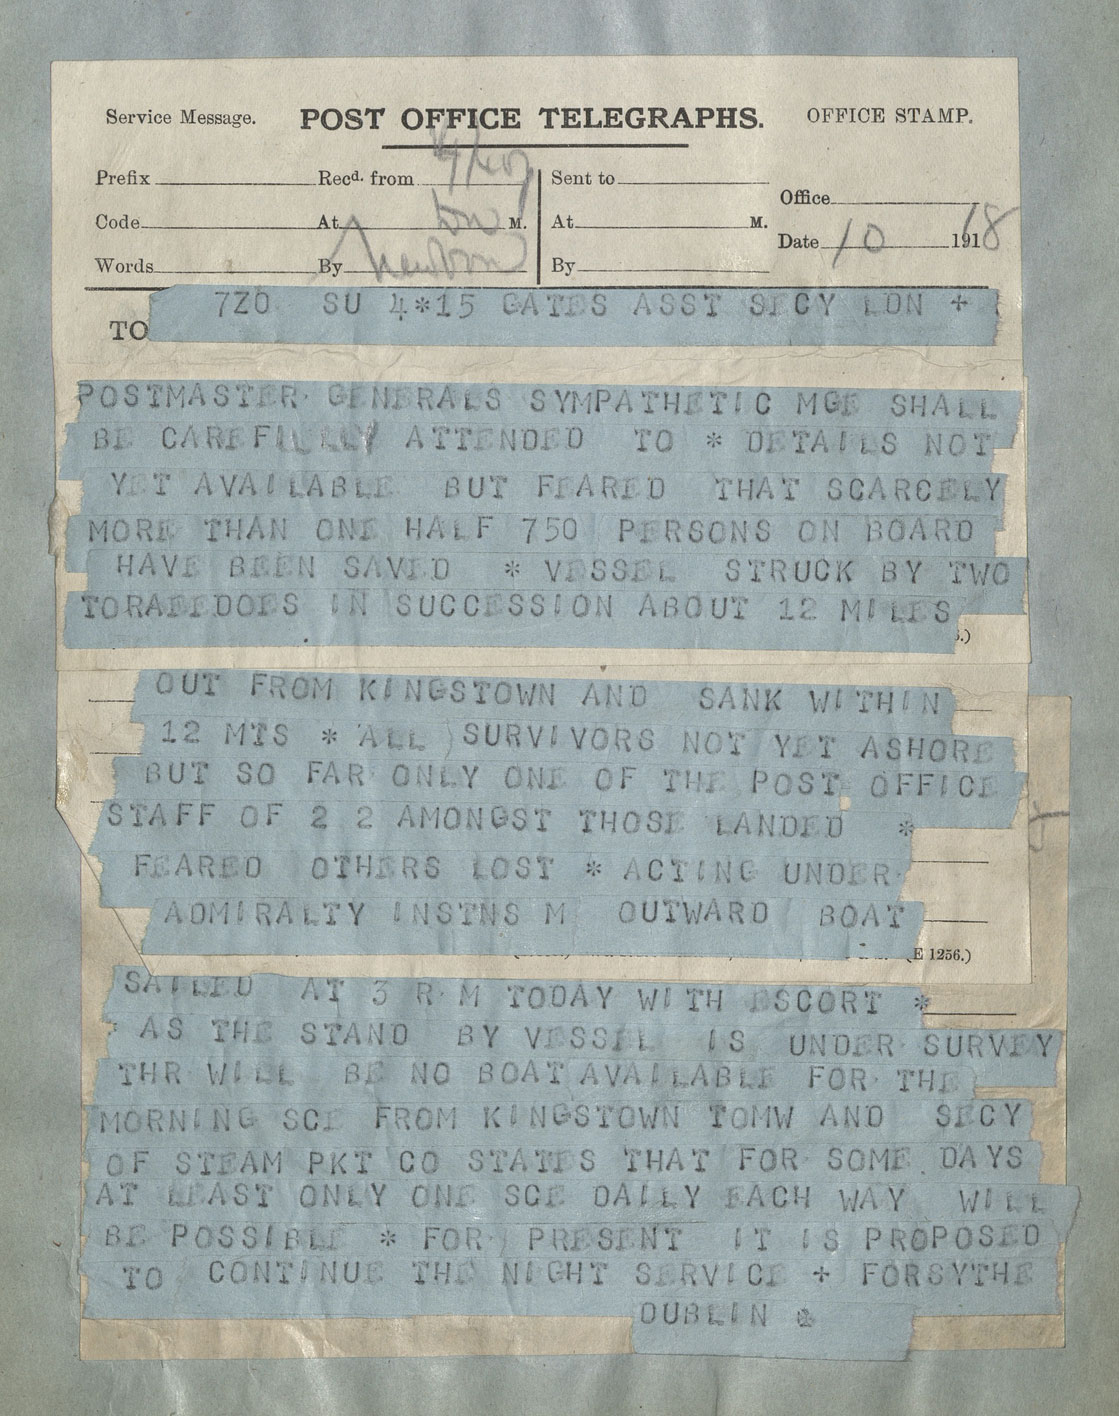 Service Message. POST OFFICE TELEGRAPHS. OFFICE STAMP.
Prefix Recd. from Sent to
Office
Code At M. At M.
Date 10 1918
Words By Newton By
TO 7ZO SU 4*15 GATES ASST SECY LDN +
POSTMASTER GENERALS SYMPATHETIC MGE SHALL
BE CAREFULLY ATTENDED TO * DETAILS NOT
YET AVAILABLE BUT FEARED THAT SCARCELY
MORE THAN ONE HALF 750 PERSONS ON BOARD
HAVE BEEN SAVED * VESSEL STRUCK BY TWO
IN SUCCESSION ABOUT 12 MILES
OUT FROM KINGSTOWN AND SANK WITHIN
12 MTS * ALL SURVIVORS NOT YET ASHORE
BUT SO FAR ONLY ONE OF THE POST OFFICE
STAFF OF 2 2 AMONGST THOSE LANDED *
FEARED OTHERS LOST * ACTING UNDER
ADMIRALTY INSTNS M OUTWARD BOAT
(E 1256.)
SAILED AT 3 P M TODAY WITH ESCORT *
AS THE STAND BY VESSEL IS UNDER SURVEY
THR WILL BE NO BOAT AVAILABLE FOR THE
MORNING SCE FROM KINGSTOWN TOMW AND SECY
OF STEAM PKT CO STATES THAT FOR SOME DAYS
AT LEAST ONLY ONE SCE DAILY EACH WAY WILL
BE POSSIBLE * FOR PRESENT IT IS PROPOSED
TO CONTINUE THE NIGHT SERVICE + FORSYTHE
DUBLIN